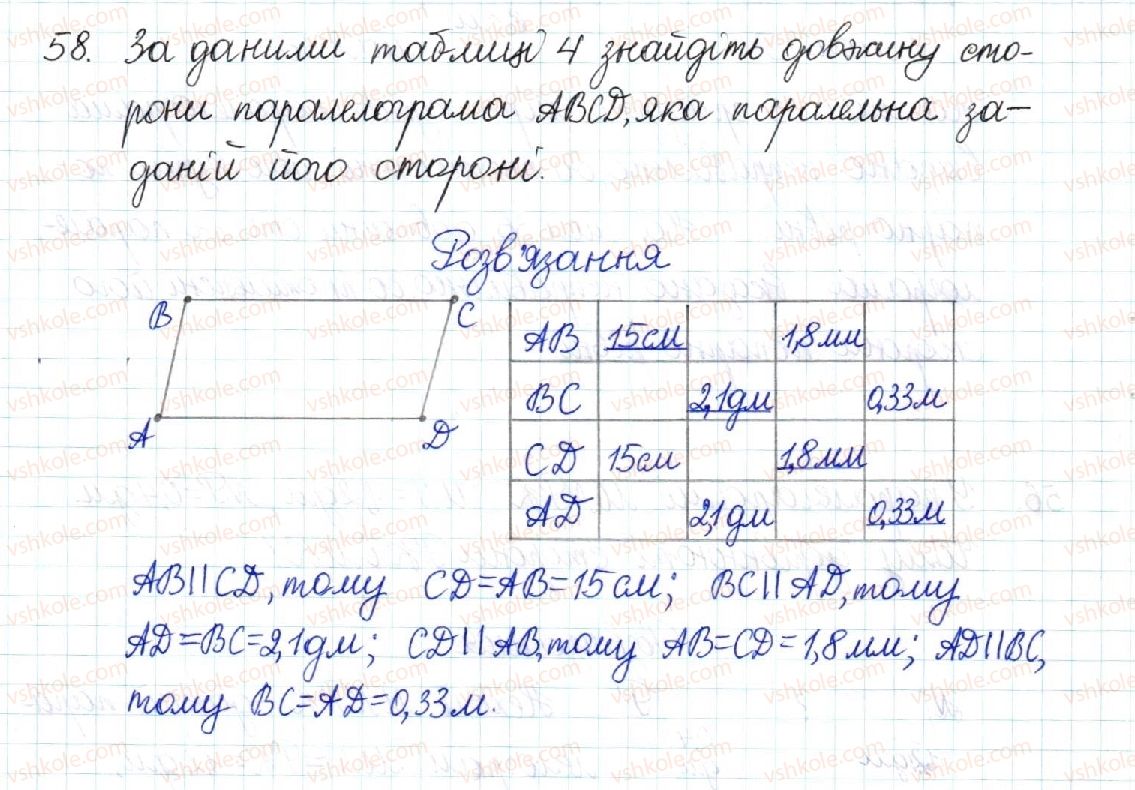 58. За даними таблиці 4 знайдіть довжину сто-
рони паралелограма ABCD, яка паралельна за-
даній його стороні.
Розв'язання
B C
A D
AB 15см 1,8мм
BC 2,1дм 0,33м
CD 15см 1,8мм
AD 2,1дм 0,33м
AB||CD, тому CD=AB=15см; BC||AD, тому
AD=BC=2,1дм; CD||AB, тому AB=CD=1,8мм; AD||BC,
тому BC=AD=0,33м.
vshkole.com